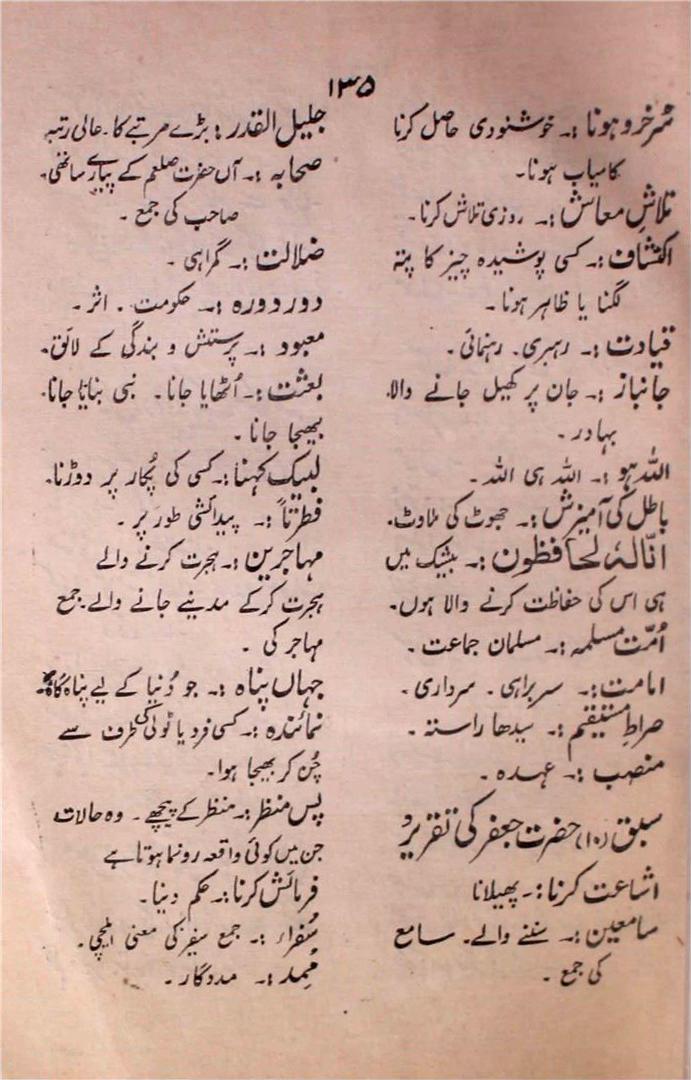 ۱۳۵
سُرخرو ہونا :۔ خوشنودی حاصل کرنا
کامیاب ہونا۔
تلاشِ معاش :۔ روزی تلاش کرنا۔
اکتشاف :۔ کسی پوشیدہ چیز کا پتہ
لگنا یا ظاہر ہونا۔
قیادت :۔ رہبری۔ رہنمائی۔
جانباز :۔ جان پر کھیل جانے والا۔
بہادر۔
اللہ ہو :۔ اللہ ہی اللہ۔
باطل کی آمیزش :۔ جھوٹ کی ملاوٹ۔
انّا لہٗ لحافظون :۔ بیشک میں
ہی اس کی حفاظت کرنے والا ہوں۔
اُمّت مسلمہ :۔ مسلمان جماعت۔
امامت :۔ سربراہی۔ سرداری۔
صراطِ مستقیم :۔ سیدھا راستہ۔
منصب :۔ عہدہ۔
سبق (۱۰) حضرت جعفر کی تقریر
اشاعت کرنا :۔ پھیلانا
سامعین :۔ سننے والے۔ سامع
کی جمع۔
جلیل القدر : بڑے مرتبے کا۔ عالی رتبہ
صحابہ :۔ آں حضرت صلعم کے پیارے ساتھی۔
صاحب کی جمع۔
ضلالت :۔ گمراہی۔
دور دورہ :۔ حکومت۔ اثر۔
معبود :۔ پرستش و بندگی کے لائق۔
بعثت :۔ اُٹھایا جانا۔ نبی بنایا جانا۔
بھیجا جانا۔
لبیک کہنا :۔ کسی کی پُکار پر دوڑنا۔
فطرتاً :۔ پیدائشی طور پر۔
مہاجرین :۔ ہجرت کرنے والے
ہجرت کرکے مدینے جانے والے۔ جمع
مہاجر کی۔
جہاں پناہ :۔ جو دُنیا کے لیے پناہ گاہ
نمائندہ :۔ کسی فرد یا ٹولی کی طرف سے
چُن کر بھیجا ہوا۔
پس منظر :۔ منظر کے پیچھے۔ وہ حالات
جن میں کوئی واقعہ رونما ہوتا ہے
فرمائش کرنا :۔ حکم دینا۔
سُفراء :۔ جمع سفیر کی معنی ایلچی۔
مُمِد :۔ مددگار۔